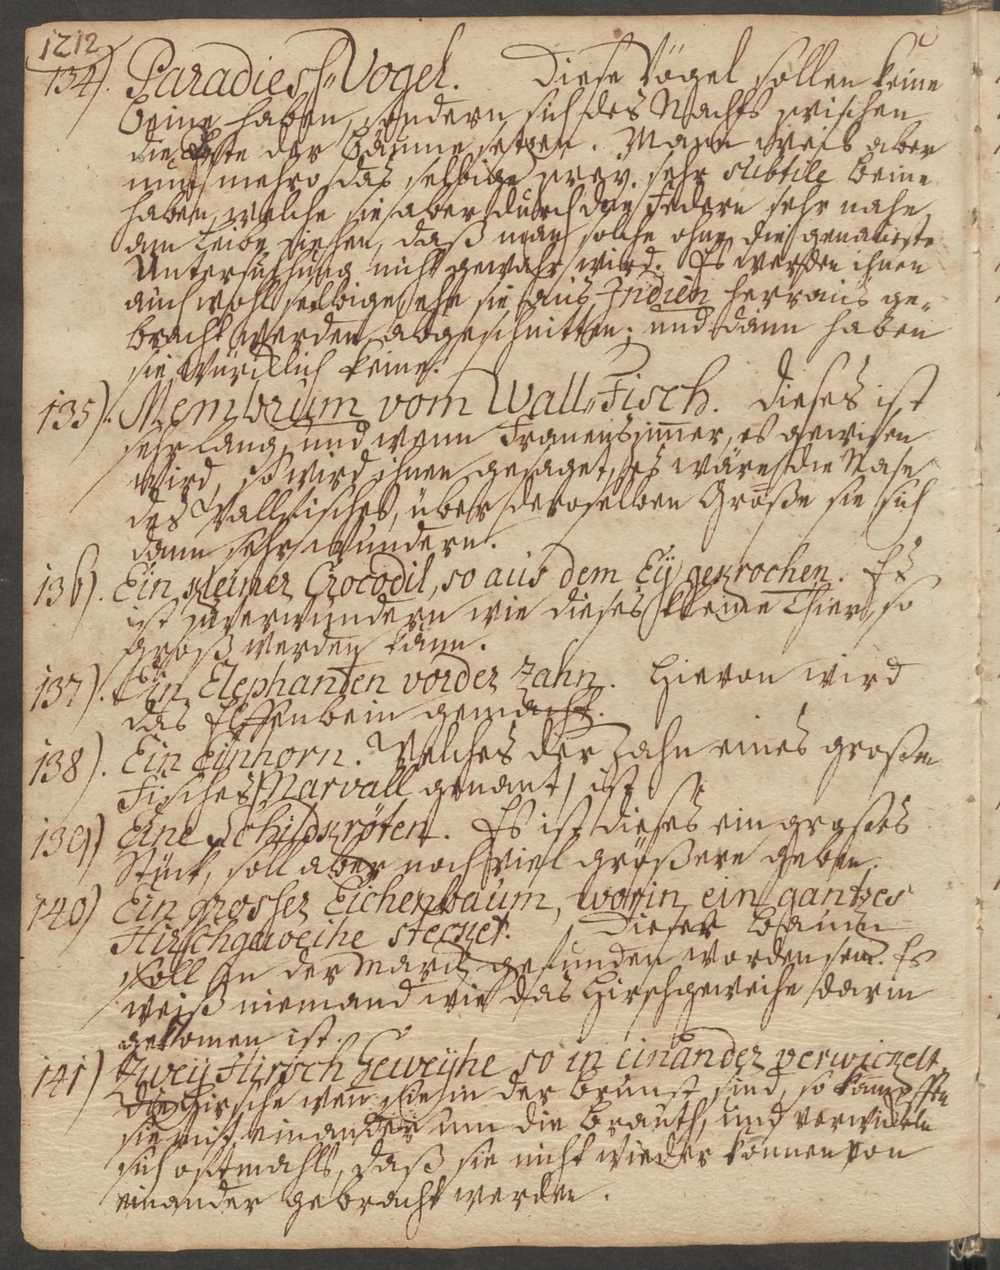 1212
134). Paradies=Vogel. Diese Vögel sollen keine
Beine haben, sondern sich des Nachts zwischen
die Äste der Bäume setzen. Mann weis aber
nun mehro, das selbige zwey sehr subtile Beine
haben, welche sie aber durch den Federn sehr nahe
am Leibe ziehen, daß man solche ohne die genaueste
Untersuchung nicht gewahr wird. Es werden ihnen
auch wohl selbige, ehe sie aus Indien herraus ge-
bracht werden, abgeschnitten; und dann haben
sie würcklich keine.
135). Membrum vom Wall=Fisch. Dieses ist
sehr lang, und wenn Frauenzimmer, es gewisen
wird, so wird ihnen gesaget, es wäre die Nase
des Wallfisches, über deroselben Größe sie sich
dann sehr wundern.
136). Ein kleiner Crocodil, so aus dem Eÿ gekrochen. Es
ist zu verwundern wie dieses kleine Thier, so
groß werden kann.
137). Ein Elephanten vorder Zahn. Hievon wird
das Elffenbein gemacht.
138). Ein Einhorn. Welches der Zahn eines großen
Fisches Narvall genant, ist
139) Eine Schildkröten. Es ist dieses ein großes
Stück, soll aber noch viel größere geben.
140) Ein grosser Eichenbaum, worin ein gantzes
Hirschgeweihe stecket. Dieser Baum
soll in der Marck gefunden worden sein. Es
weiß niemand wie das Hirschgeweihe darin
gekomen ist.
141) Zweÿ Hirsch Geweÿhe so in einander verwickelt,
Die Hirsche wen sie in der Brunst sind, so kämpffen
sie mit einander um die Brauth, und verwickeln
sich oftmahls, daß sie nicht wieder können von
einander gebracht werden.